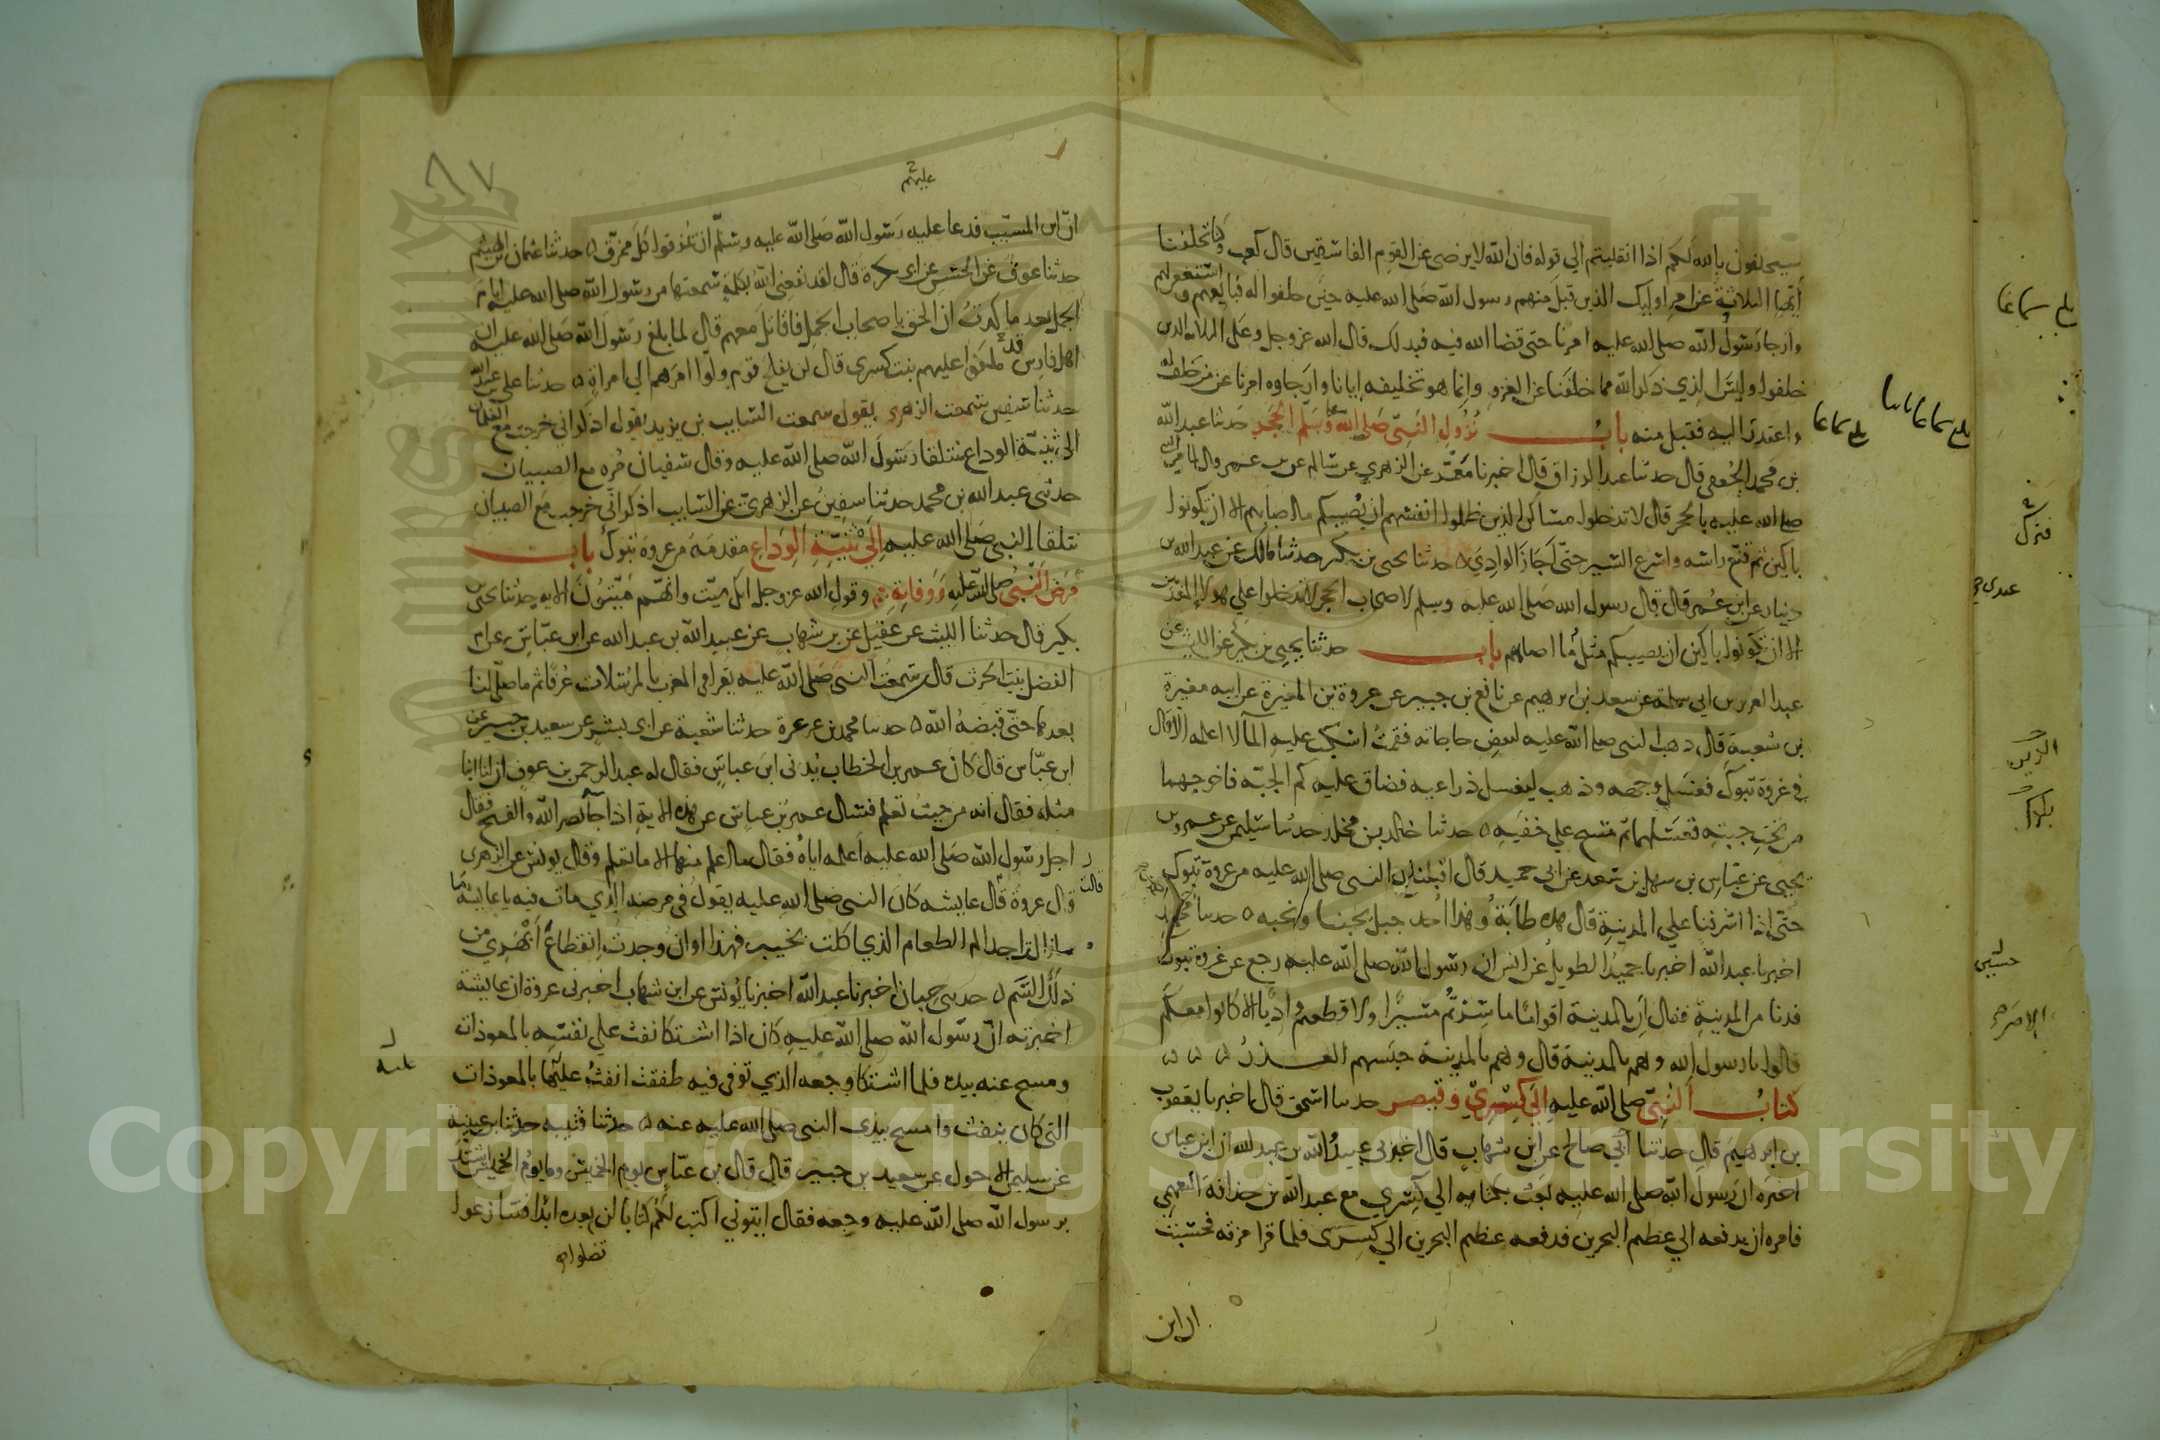 سيحلفون بالله لكم اذا انقلبتم الي قوله فان الله لا يرضي عن القوم الفاسقين قال كعب وكنا تخلفنا
أيها الثلاثة عن امر اوليك الذين قبل منهم رسول الله صلى الله عليه حين حلفوا له فبايعهم واستغفر لهم
وارجا رسول الله صلى الله عليه امرنا حتى قضا الله فيه فبذلك قال الله عز وجل وعلى الثلاثة الذين
خلفوا وليس الذي ذكر الله مما خلفنا عن الغزو وانما هو تخليفه إيانا وارجاوه امرنا عن من حلف له
واعتذر اليه فقبل منه باب نزول النبي صلى الله عليه وسلم الحجر حدثنا عبد الله
بن محمد الجعفي قال حدثنا عبد الرزاق قال اخبرنا معمر عن الزهري عن سالم عن بن عمر قال لما مر النبي
صلى الله عليه بالحجر قال لا تدخلوا مساكن الذين ظلموا انفسهم ان يصيبكم ما اصابهم الا ان تكونوا
باكين ثم قنع راسه واسرع السير حتى اجاز الوادي حدثنا يحيى بن بكير حدثنا مالك عن عبد الله بن
دينار عن ابن عمر قال قال رسول الله صلى الله عليه وسلم لاصحاب الحجر لا تدخلوا علي هولا المعذبين
الا ان تكونوا باكين ان يصيبكم مثل ما اصابهم باب حدثنا يحيى بن بكير عن الليث عن
عبد العزيز بن ابي سلمة عن سعد بن ابرهيم عن نافع بن جبير عن عروة بن المغيرة عن ابيه مغيرة
بن شعبة قال ذهب النبي صلى الله عليه لبعض حاجاته فقمت اسكب عليه الما لا اعلمه الا قال
في غزوة تبوك فغسل وجهه وذهب ليغسل ذراعيه فضاق عليه كم الجبة فاخرجهما
من تحت جبته فغسلهما ثم مسح علي خفيه حدثنا خالد بن مخلد حدثنا سليمن عن عمرو بن
يحيى عن عباس بن سهل بن سعد عن ابي حميد قال اقبلنا مع النبي صلى الله عليه من غزوة تبوك
حتى إذا اشرفنا علي المدينة قال هذه طابة وهذا احد جبل يحبنا ونحبه حدثنا احمد
اخبرنا عبد الله اخبرنا حميد الطويل عن انس ان رسول الله صلى الله عليه رجع عن غزوة تبوك
فدنا من المدينة فقال ان بالمدينة اقواما ما سرتم مسيرا ولا قطعتم واديا الا كانوا معكم
قالوا يا رسول الله وهم بالمدينة قال وهم بالمدينة حبسهم العذر
كتاب النبي صلى الله عليه الي كسري وقيصر حدثنا اسحق قال اخبرنا يعقوب
بن ابرهيم قال حدثنا أبي صالح عن ابن شهاب قال اخبرني عبيد الله بن عبد الله ان ابن عباس
اخبره ان رسول الله صلى الله عليه بعث بكتابه الي كسري مع عبد الله بن حذافة السهمي
فامره ان يدفعه الي عظيم البحرين فدفعه عظيم البحرين الي كسرى فلما قرا مزقه فحسبت
ان ابن
عليهم
ان ابن المسيب فدعا عليه رسول الله صلى الله عليه وسلم ان يمزقوا كل ممزق حدثنا عثمان بن الهيثم
حدثنا عوف عن الحسن عن ابي بكرة قال لقد نفعني الله بكلمة سمعتها من رسول الله صلى الله عليه ايام
الجمل بعد ما كدت ان الحق باصحاب الجمل فاقاتل معهم قال لما بلغ رسول الله صلى الله عليه ان
اهل فارس قد ملكوا عليهم بنت كسرى قال لن يفلح قوم ولوا امرهم الي امراة حدثنا علي بن عبد الله
حدثنا سفين سمعت الزهري يقول سمعت السايب بن يزيد يقول اذكر اني خرجت مع الغلمان
الى ثنية الوداع نتلقا رسول الله صلى الله عليه وقال سفيان مره مع الصبيان
حدثني عبد الله بن محمد حدثنا سفين عن الزهري عن السايب اذكر اني خرجت مع الصبيان
نتلقا النبي صلى الله عليه إلي ثنية الوداع مقدمه من غزوة تبوك باب
مرض النبي صلى الله عليه ووفاته وقول الله عز وجل انك ميت وانهم ميتون الاية حدثنا يحيى بن
بكير قال حدثنا الليث عن عقيل عن بن شهاب عن عبيد الله بن عبد الله عن ابن عباس عن ام
الفضل بنت الحرث قال سمعت النبي صلى الله عليه يقرا في المغرب بالمرسلات عرفا ثم ما صلى لنا
بعدها حتى قبضه الله حدثنا محمد بن عرعرة حدثنا شعبة عن ابي بشر عن سعيد بن جبير عن
ابن عباس قال كان عمر بن الخطاب يدني ابن عباس فقال له عبد الرحمن بن عوف ان لنا ابنا
مثله فقال انه من حيث تعلم فسال عمر بن عباس عن هذه الاية اذا جا نصر الله والفتح فقال
اجل رسول الله صلى الله عليه اعلمه اياه فقال ما اعلم منها الا ما تعلم وقال يونس عن الزهري
قال عروة قال عايشه كان النبي صلى الله عليه يقول في مرضه الذي مات فيه يا عايشة ما
ما ازال اجد الم الطعام الذي اكلت بخيبر فهذا اوان وجدت انقطاع أبهري من
ذلك السم حدثني حبان اخبرنا عبد الله اخبرنا يونس عن ابن شهاب اخبرني عروة ان عايشة
اخبرته ان رسول الله صلى الله عليه كان اذا اشتكا نفث علي نفسه بالمعوذات
ومسح عنه بيده فلما اشتكا وجعه الذي توفي فيه طفقت انفث عليه بالمعوذات
التي كان ينفث وامسح بيد النبي صلى الله عليه عنه حدثنا قتيبه حدثنا بن عيينة
عن سليمن الاحول عن سعيد بن جبير قال قال بن عباس يوم الخميس وما يوم الخميس اشتد
برسول الله صلى الله عليه وجعه فقال ايتوني اكتب لكم كتابا لن تضلوا بعده ابدا فتنازعوا
قالت
عليه
فترك
Copyright © King Saud University